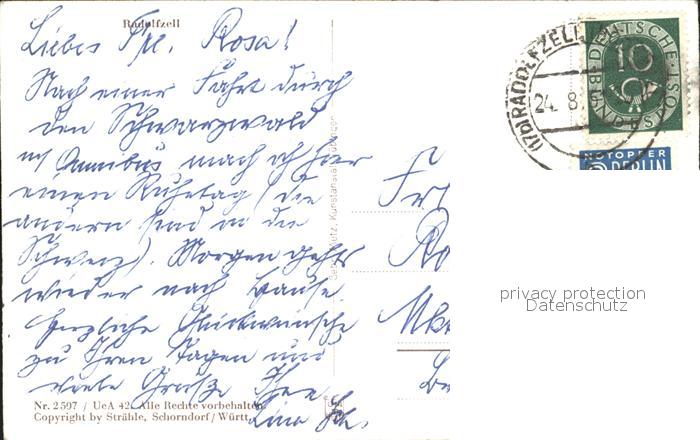 Radolfzell
Liebes Frl. Rosa!
Nach einer Fahrt durch
den Schwarzwald
m/ Omnibus mach ich hier
einen Ruhetag (die
andern sind in die
Schweiz). Morgen gehts
wieder nach Hause.
Herzliche Glückwünsche
zu Ihren Tagen und
viele Grüße Ihre
Lina
Nr. 2597 / UeA 42. Alle Rechte vorbehalten
Copyright by Strähle, Schorndorf/Württ.
(17b) RADOLFZELL
24. 8.
DEUTSCHE
BUNDESPOST
10
NOTOPFER
2 BERLIN
privacy protection
Datenschutz